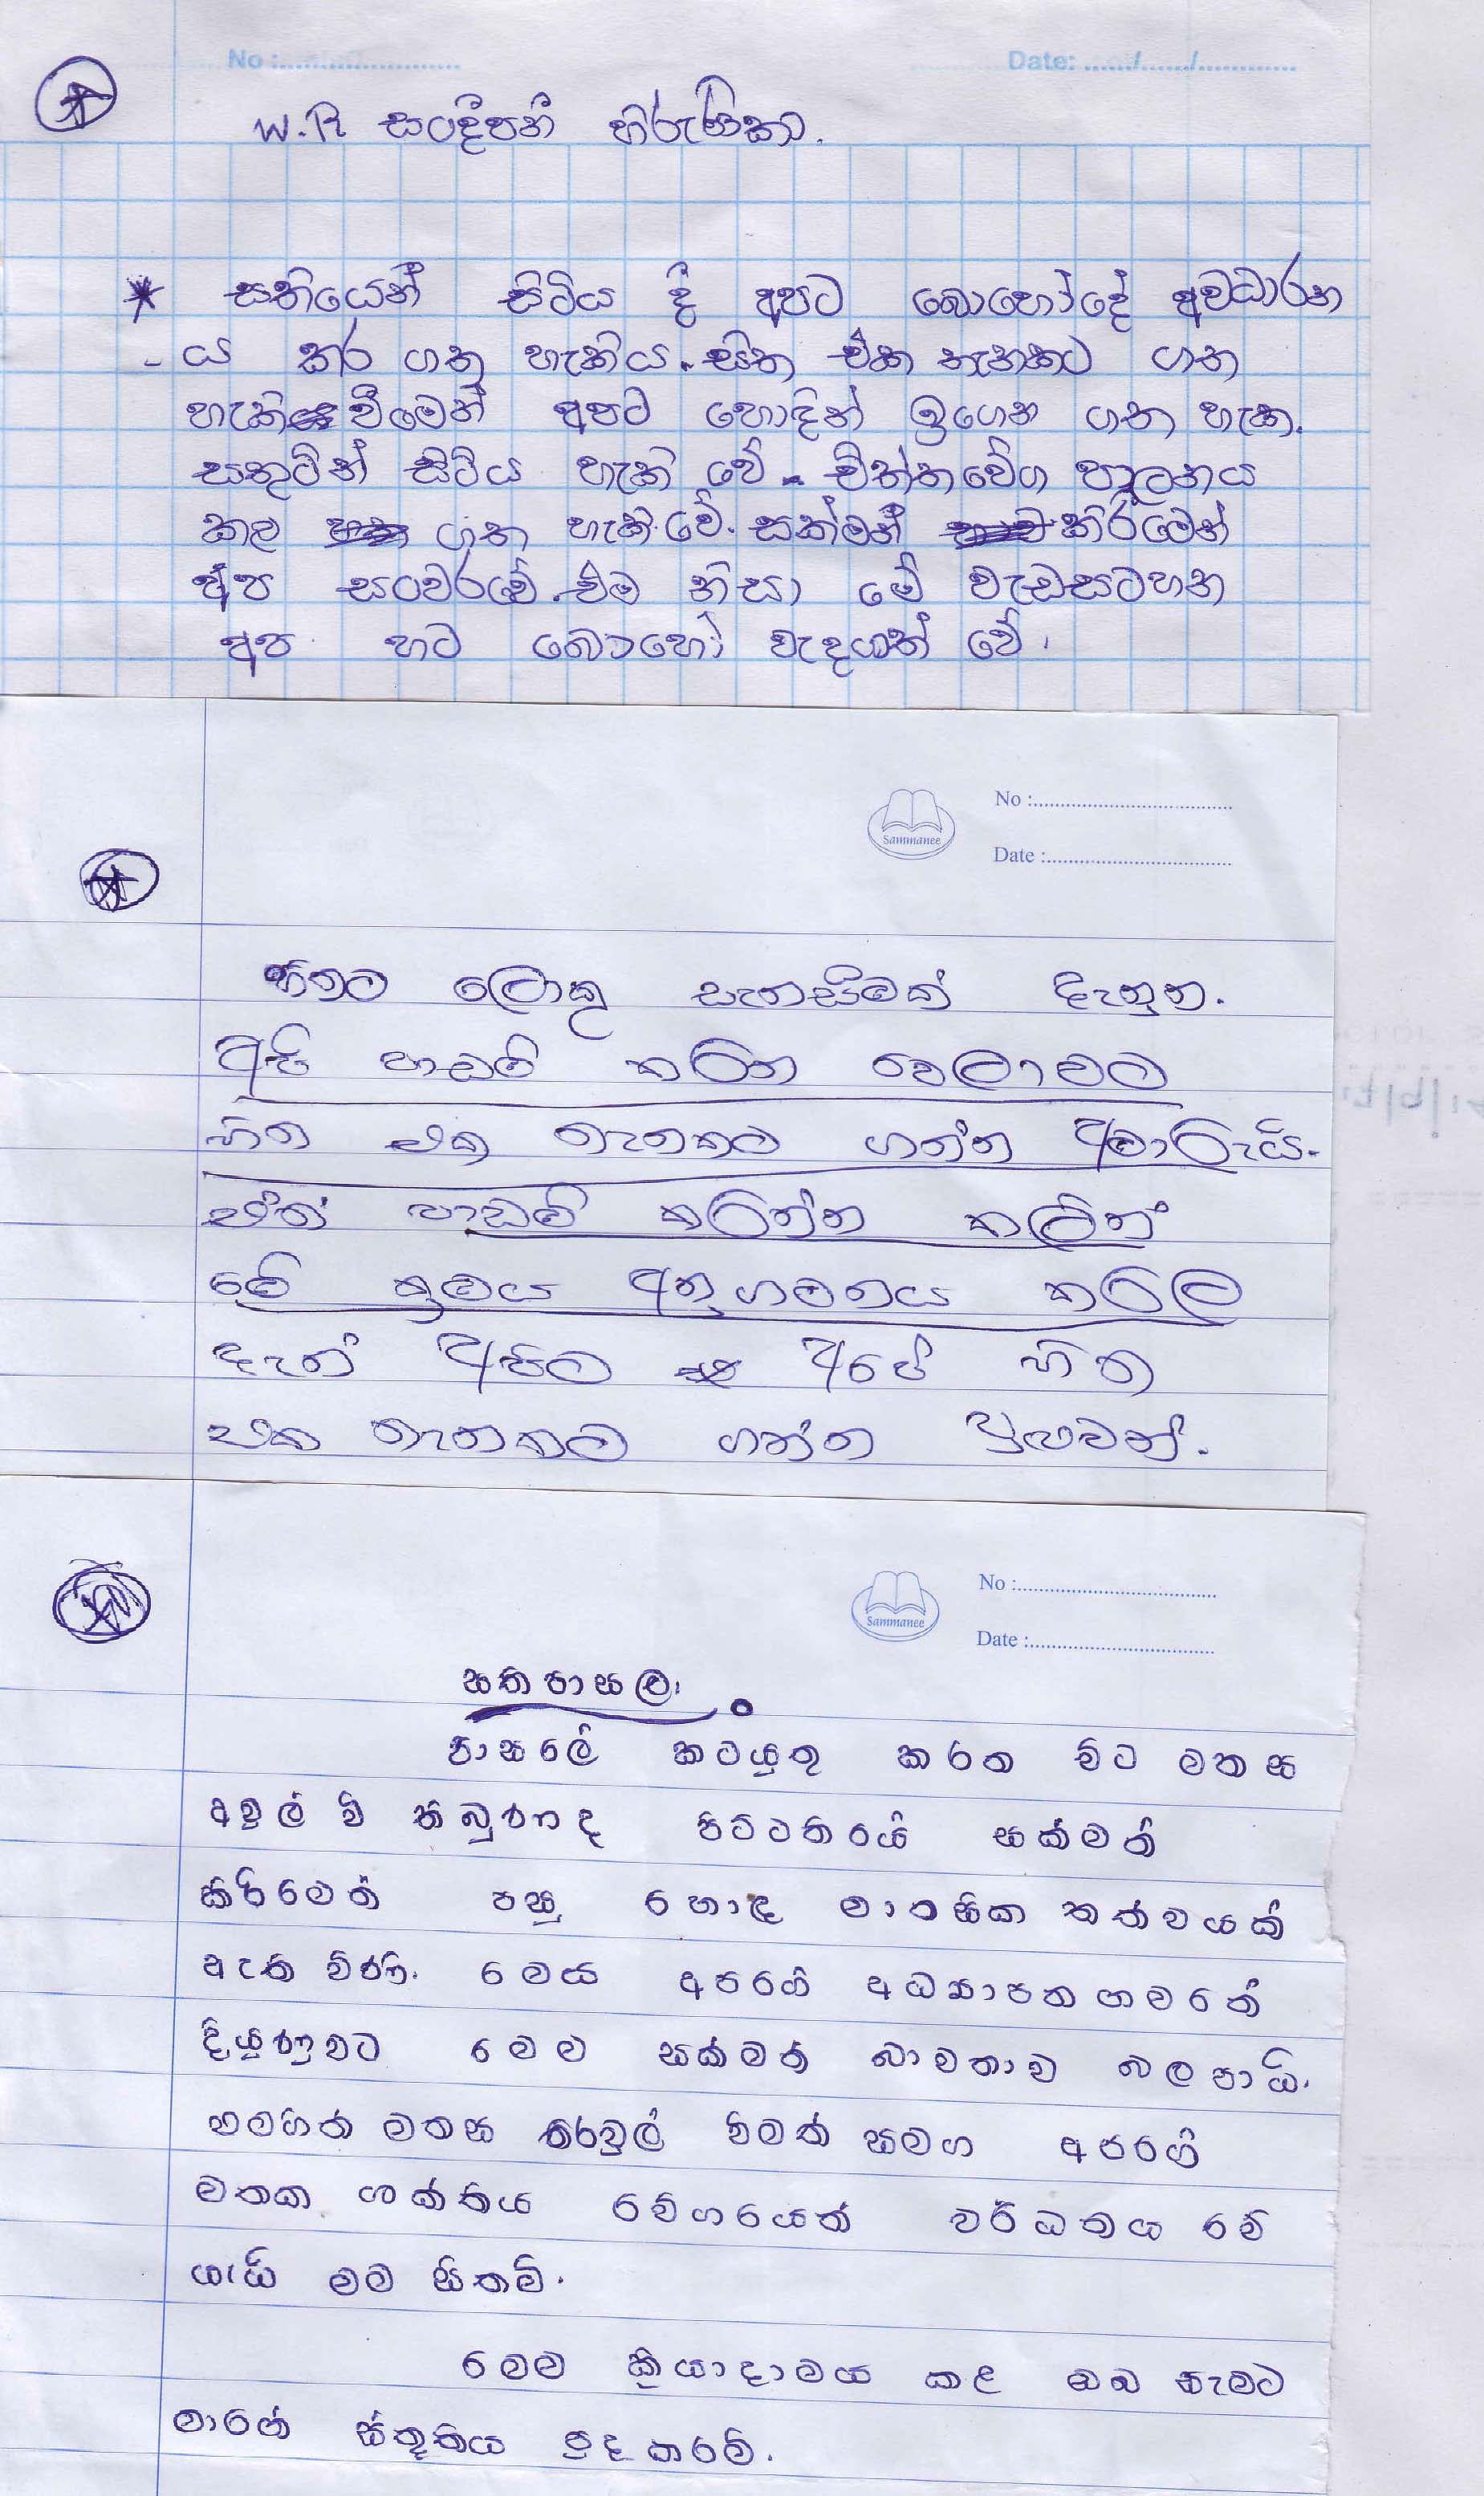 No :........................ Date: ....../....../............
W.R සංදීපනී හිරුණිකා.
* සතියෙන් සිටිය දී අපට බොහෝදේ අවධාරන
- ය කර ගත හැකිය. සිත එක තැනකට ගත
හැකි වීමෙන් අපට හොඳින් ඉගෙන ගත හැක.
සතුටින් සිටිය හැකි වේ. චිත්තවේග පාලනය
කළ ගත හැකි වේ. සක්මන් කිරීමෙන්
අප සංවරවේ. එම නිසා මේ වැඩසටහන
අප හට බොහෝ වැදගත් වේ.
No :....................................
Sammanee
Date :....................................
හිතට ලොකු සැනසීමක් දැනුන.
අපි පාඩම් කරන වෙලාවට
හිත එක තැනකට ගන්න අමාරුයි.
එත් පාඩම් කරන්න කළින්
මේ ක්‍රමය අනුගමනය කරල
දැන් අපිට අපේ හිත
එක තැනකට ගන්න පුළුවන්.
No :....................................
Sammanee
Date :....................................
සති පාසල.
පාසලේ කටයුතු කරන විට මනස
අවුල් වී තිබුණද පිට්ටනියේ සක්මන්
කිරීමෙන් පසු හොඳ මානසික තත්වයක්
ඇති විණි. මෙය අපගේ අධ්‍යාපන
දියුණුවට මෙම සක්මන් බාවනාව බලපායි.
සමගින් මනස නිරවුල් වීමත් සමග අපගේ
මතක ශක්තිය වේගයෙන් වර්ධනය වේ
යැයි මම සිතමි.
මෙම ක්‍රියාදාමය කළ ඔබ සැමට
මාගේ ස්තූතිය පුද කරමි.